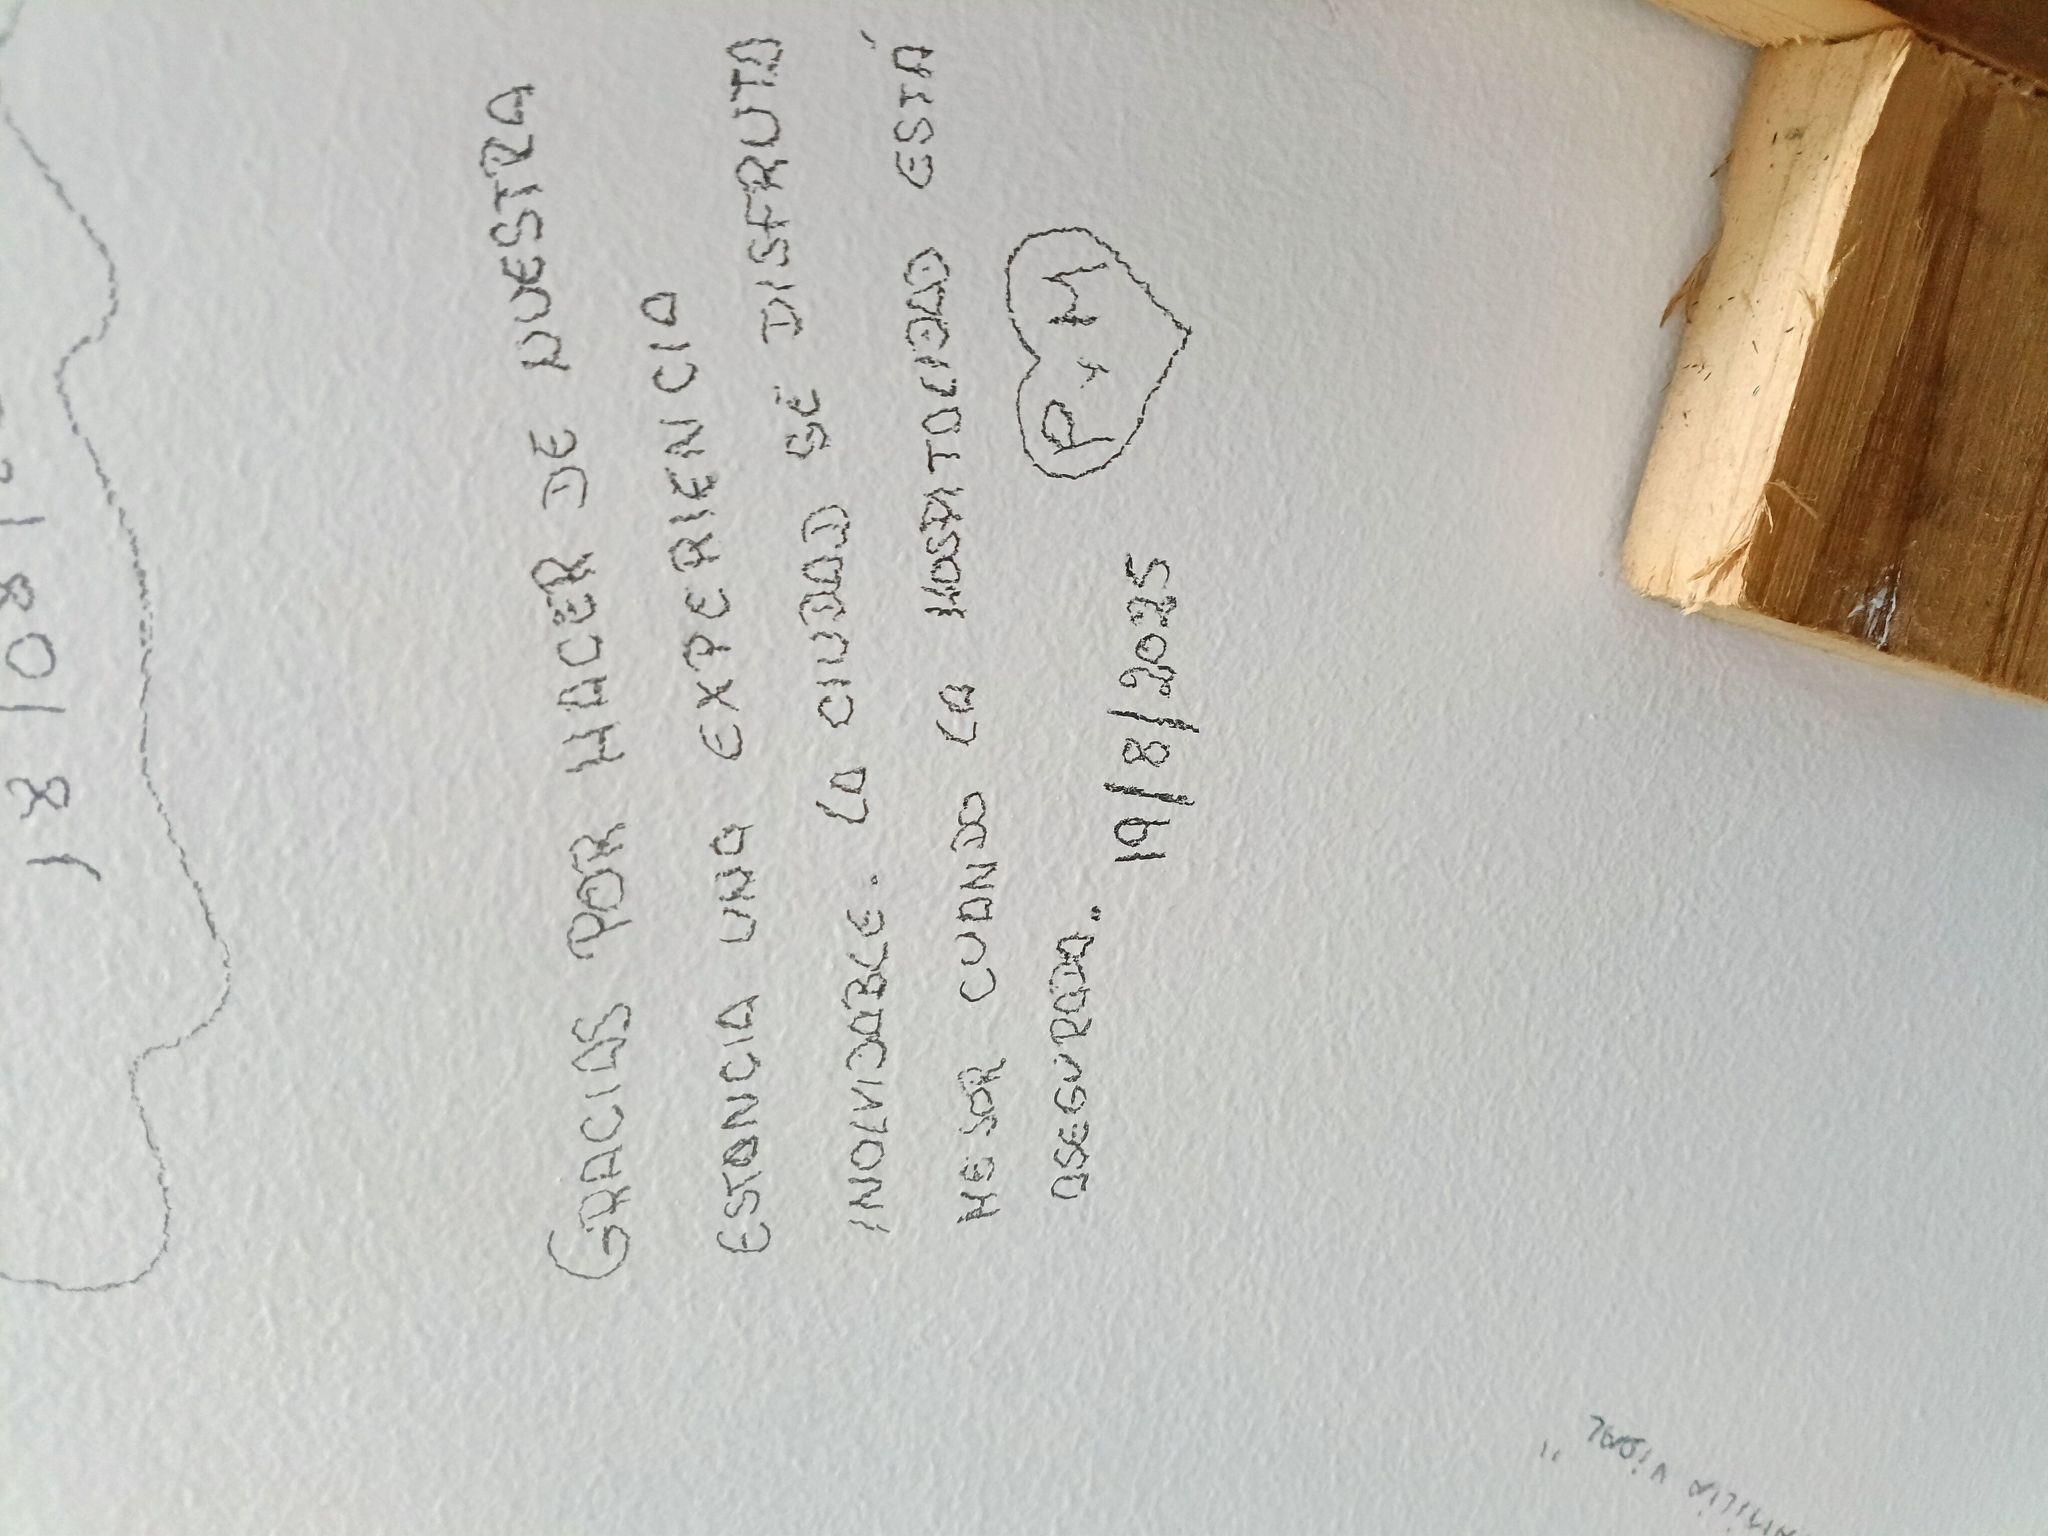 18/08/2
GRACIAS POR HACER DE NUESTRA
ESTANCIA UNA EXPERIENCIA
INOLVIDABLE. LA CIUDAD SE DISFRUTA
MEJOR CUANDO LA HOSPITALIDAD ESTÁ
ASEGURADA..
19/8/2025
P+M
VIDAL "